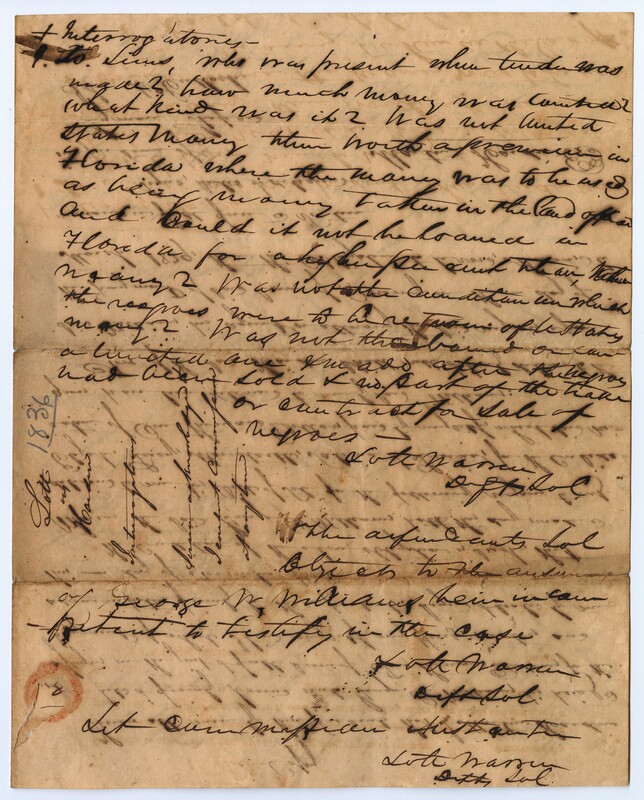 + Interrogatories —
1. to Sims, who was present when tender was
made? how much money was counted?
what kind was it? Was not United
States money then worth a premium in
Florida where the money was to be used
as being money taken in the land office
and Could it not be loaned in
Florida for a higher per cent than other
money? Was not the condition on which
the negroes were to be return of U States
money? Was not the bond or
a limited one & made after the negroes
had been sold & no part of the trade
or contract for sale of
negroes —
Lott Warren
Defts Sol.
The defendants Sol
Objects to the answer
of George W. Williams being incom
-petent to testify in the case
Lott Warren
Defts Sol.
Let commission
Lott Warren
Defts Sol.
1836
Lott
vs
Interrogatories